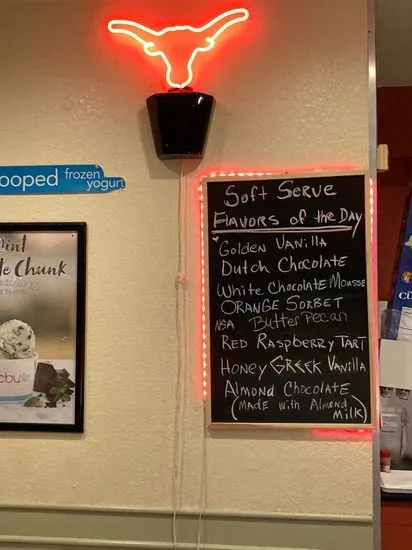 ooped frozen
yogurt
Mint
te Chunk
cby
Soft Serve
Flavors of the Day
Golden Vanilla
Dutch Chocolate
White Chocolate Mousse
Orange Sorbet
NSA Butter Pecan
Red Raspberry Tart
Honey Greek Vanilla
Almond Chocolate
(Made with Almond
Milk)